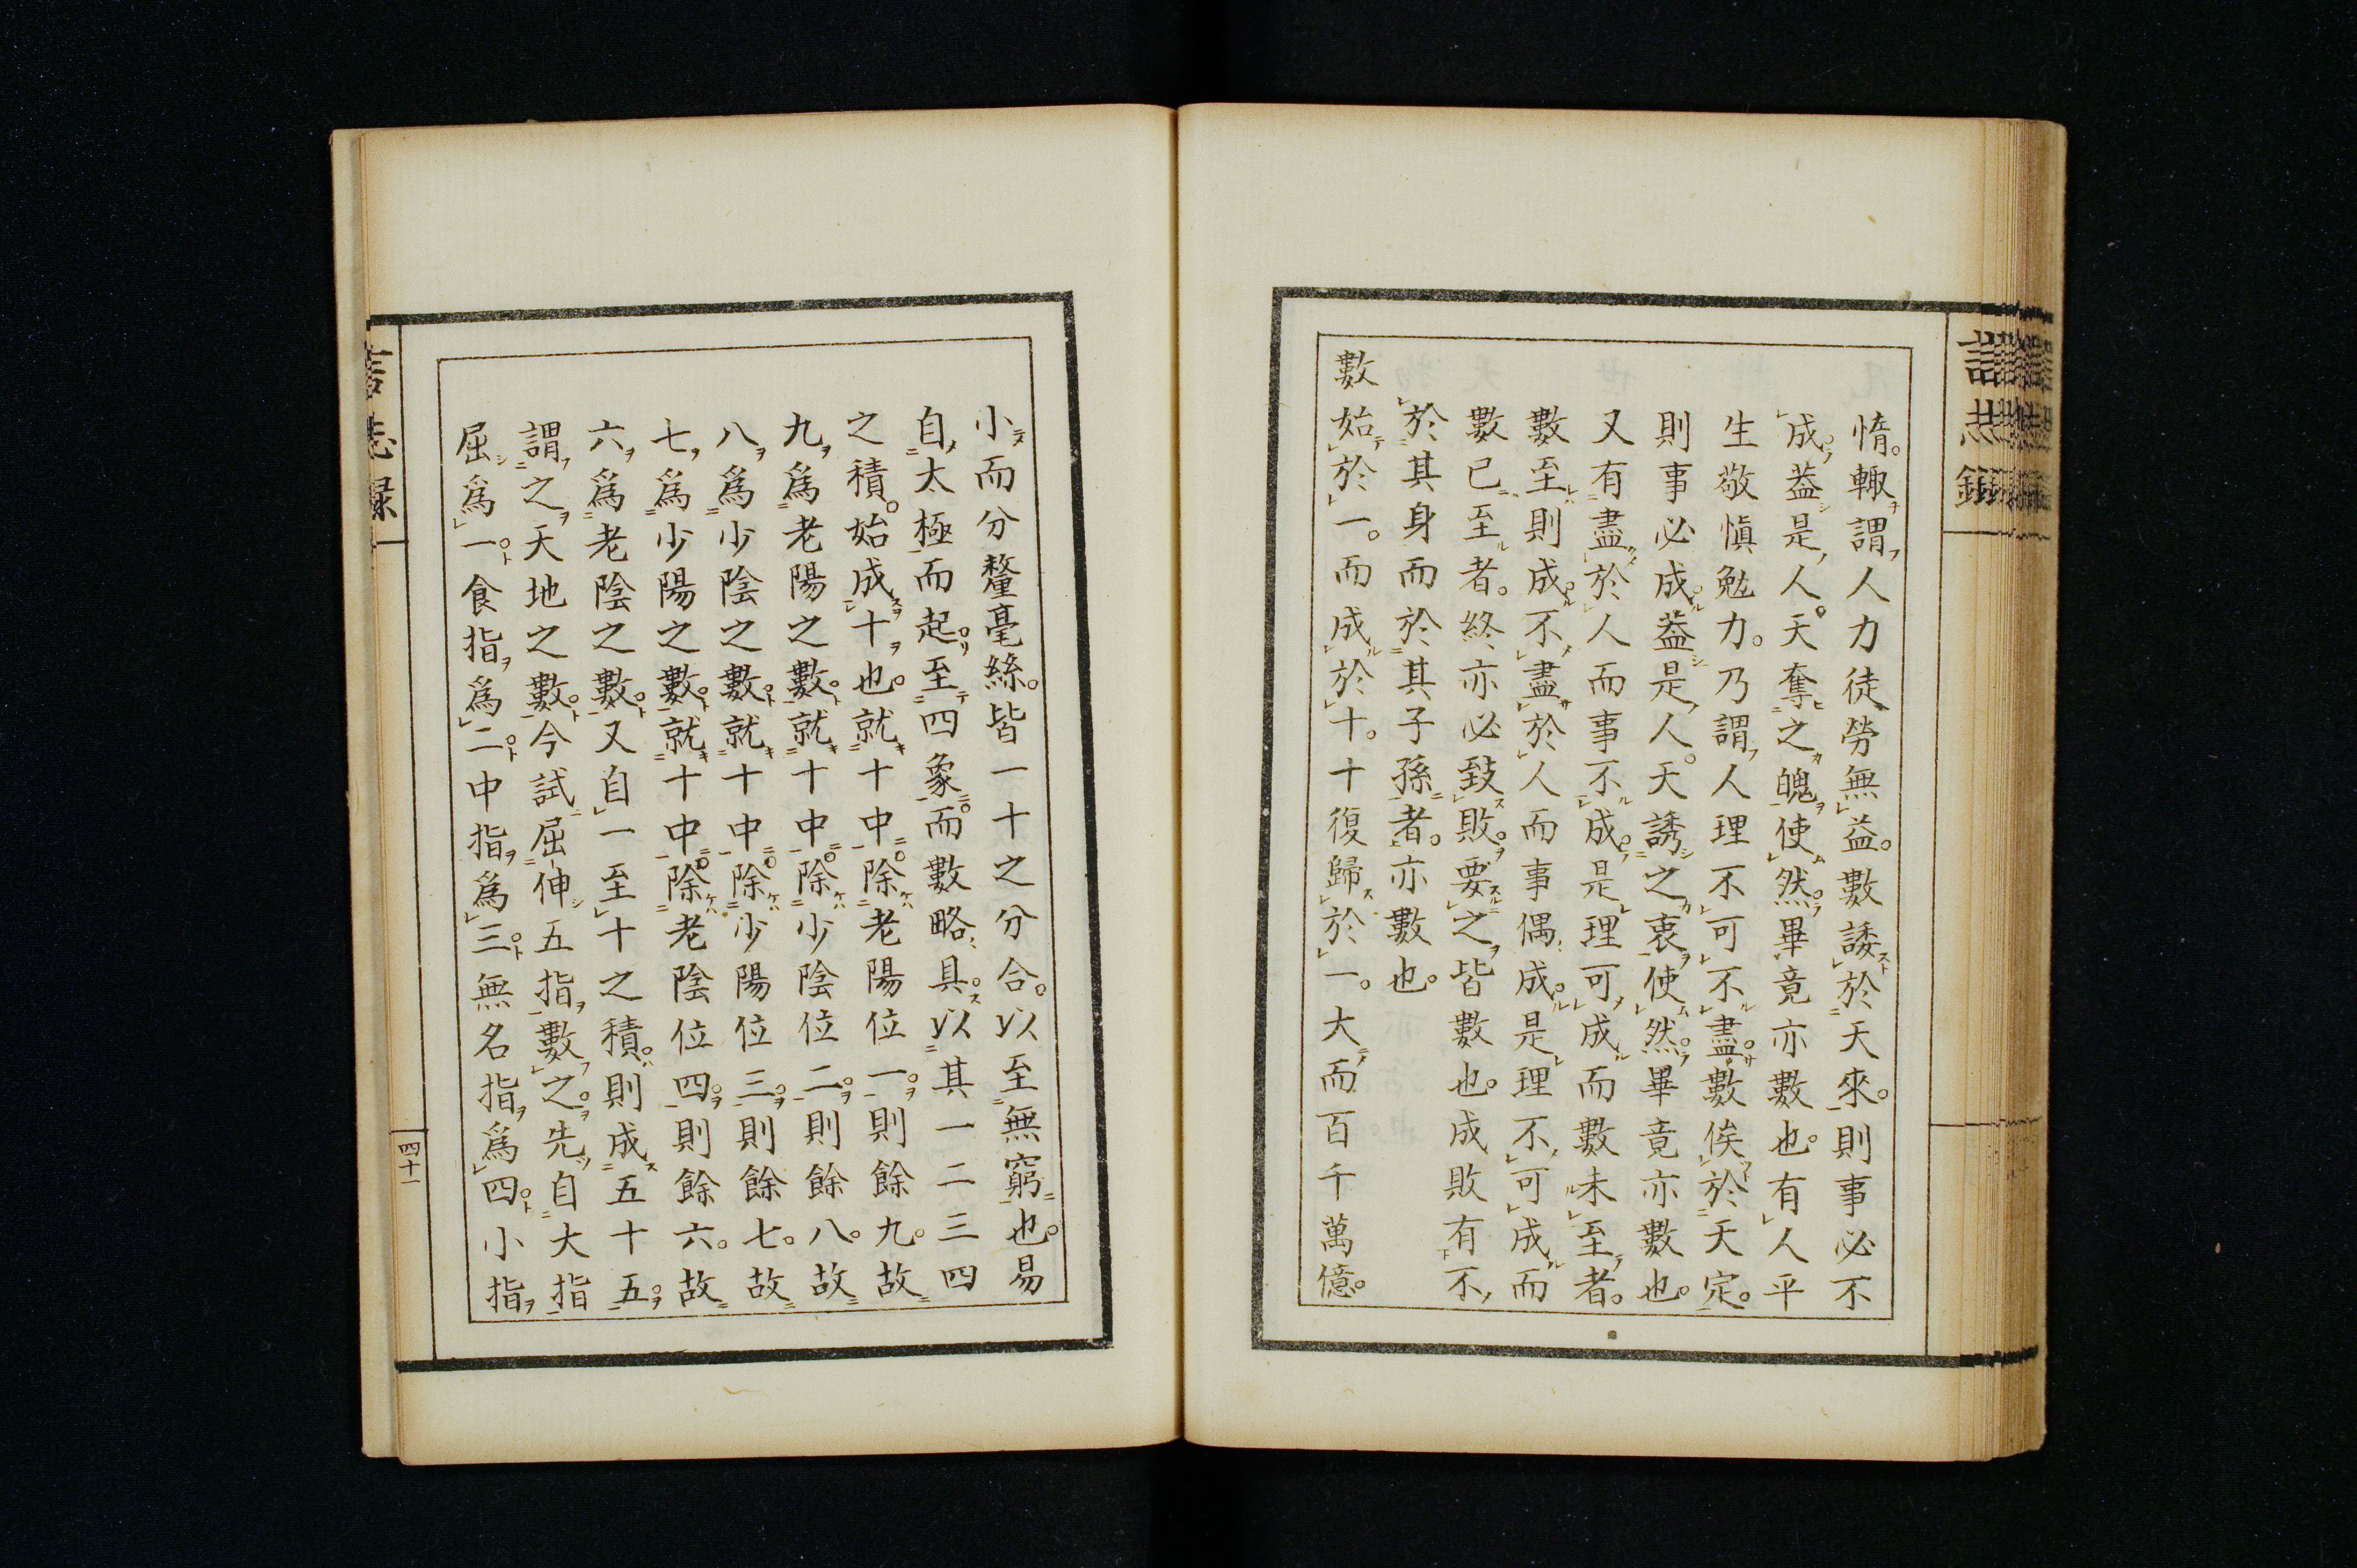 言志錄
惰。輙謂人力徒勞無益。數諉於天來。則事必不
成。葢是人。天奪之魄使然。畢竟亦數也。有人平
生敬愼勉力。乃謂人理不可不盡。數俟於天定。
則事必成。葢是人。天誘之衷使然。畢竟亦數也。
又有盡於人而事不成。是理可成而數未至者。
數至則成。不盡於人而事偶成。是理不可成而
數已至者。終亦必致敗。要之皆數也。成敗有不
於其身而於其子孫者。亦數也。
數始於一。而成於十。十復歸於一。大而百千萬億。
小而分釐毫絲。皆一十之分合。以至無窮也。易
自太極而起。至四象。而數略具。以其一二三四
之積。始成十也。就十中除老陽位一。則餘九。故
九爲老陽之數。就十中除少陰位二。則餘八。故
八爲少陰之數。就十中除少陽位三。則餘七。故
七爲少陽之數。就十中除老陰位四。則餘六。故
六爲老陰之數。又自一至十之積。則成五十五。
謂之天地之數。今試屈伸五指數之。先自大指
屈爲一。食指爲二。中指爲三。無名指爲四。小指
言志錄
四十一